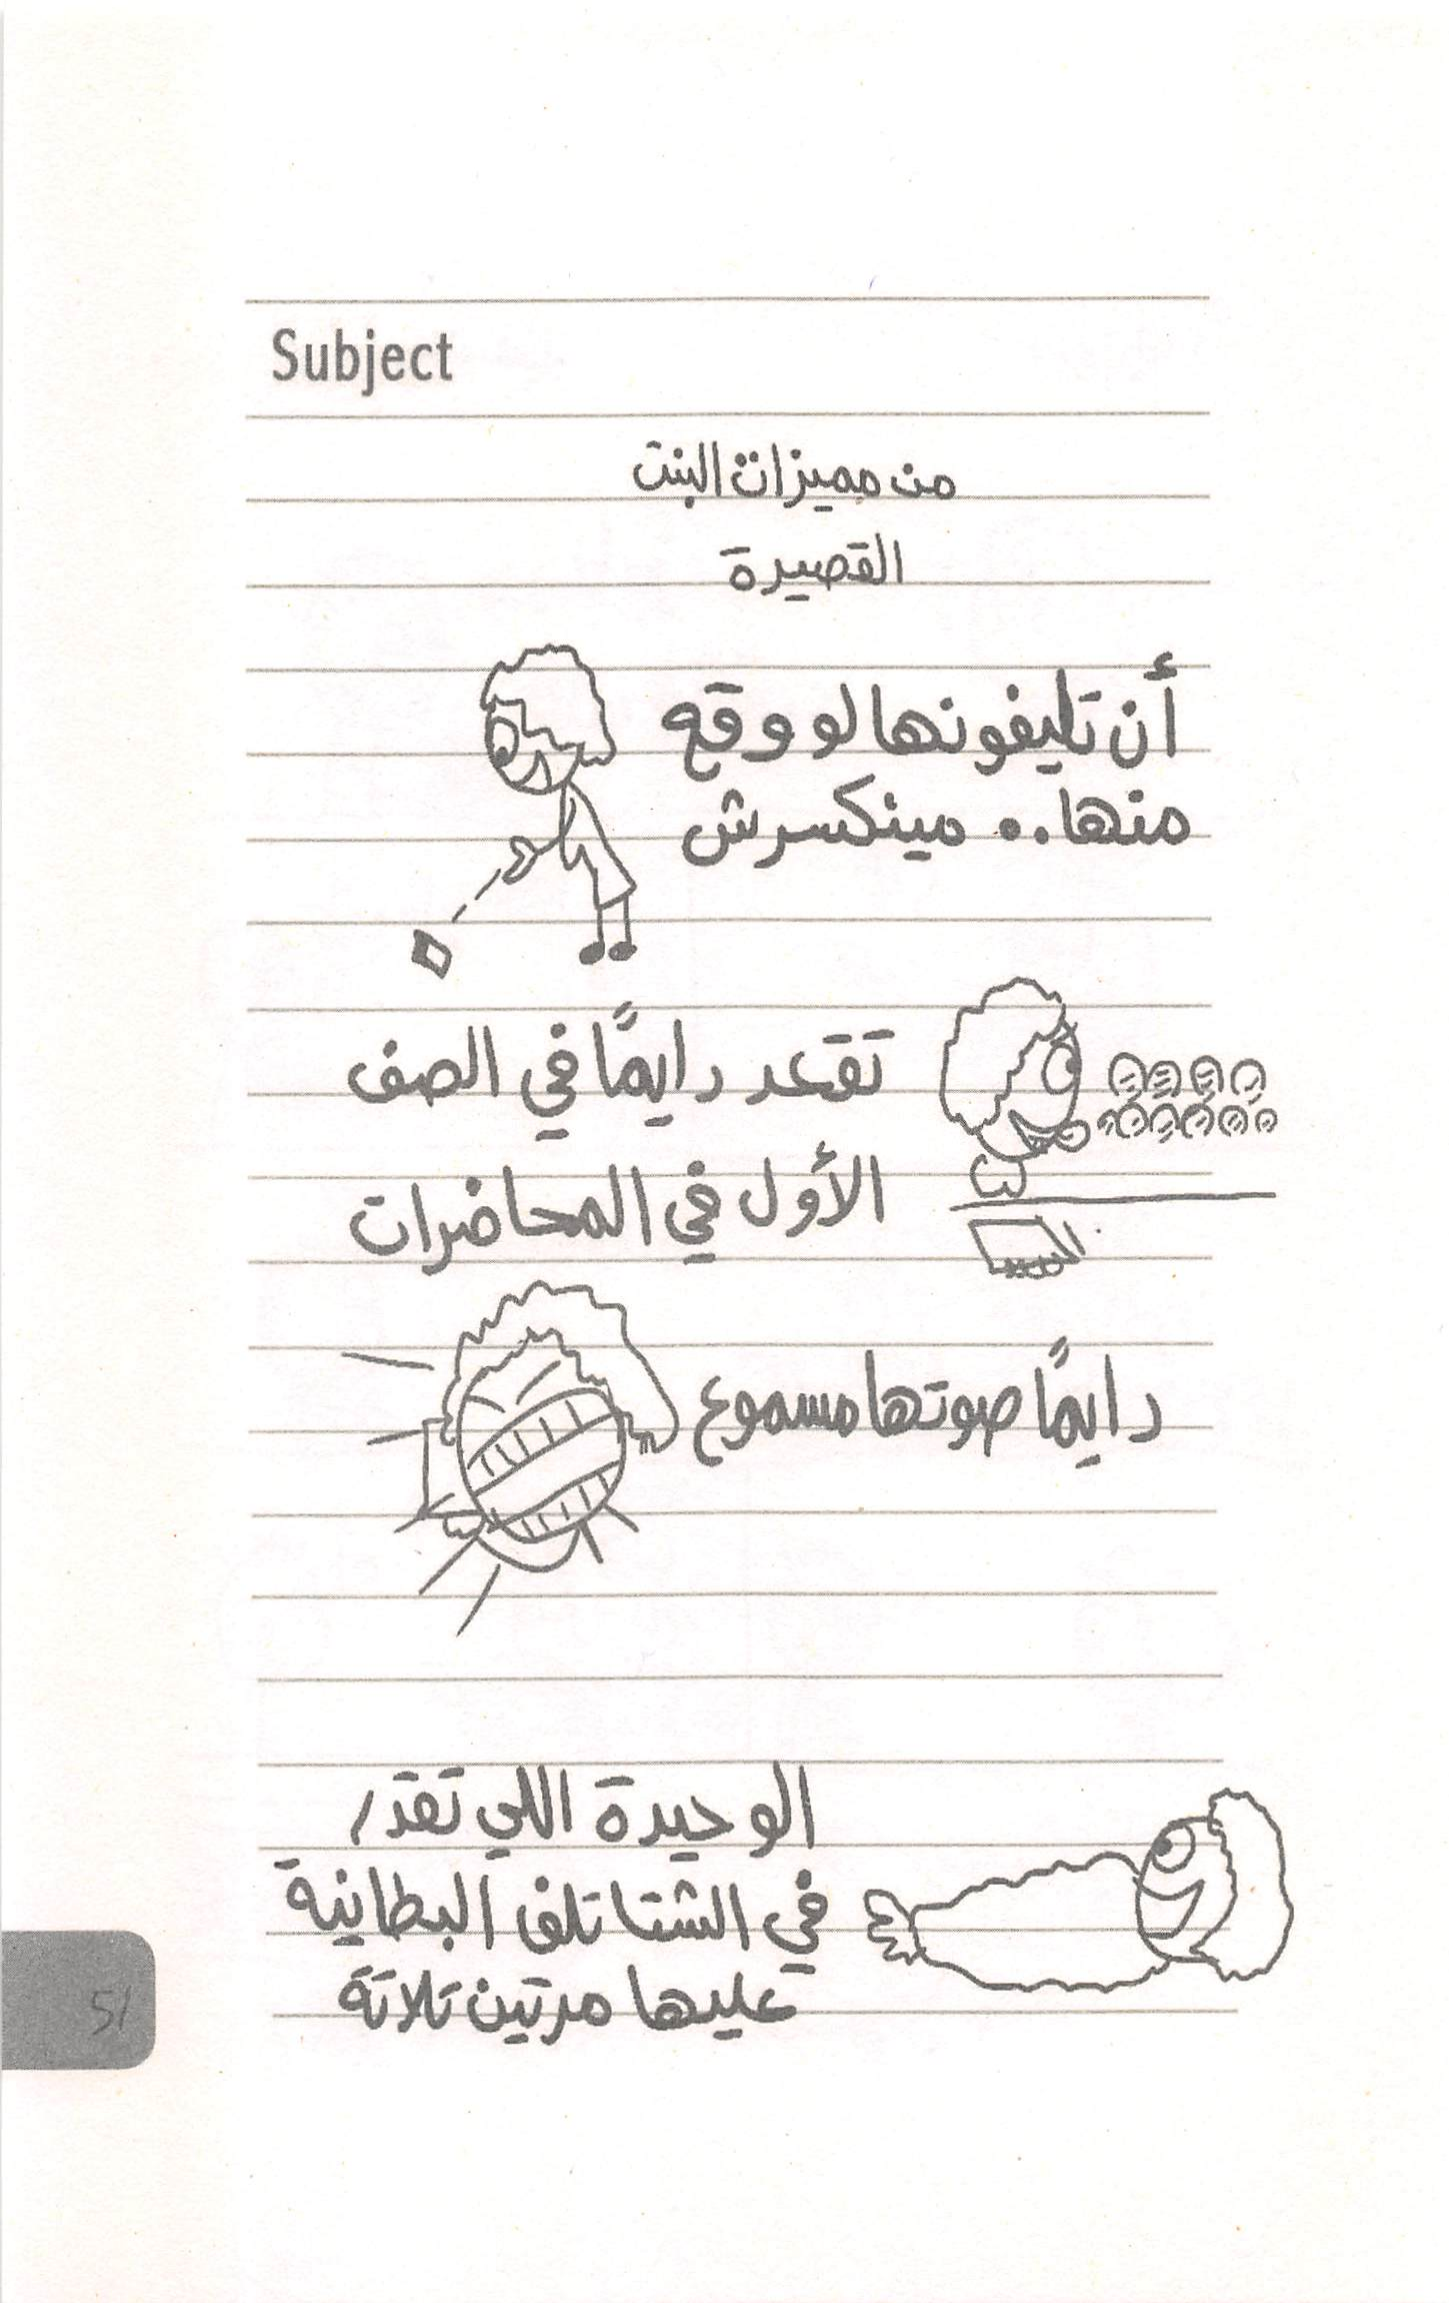 Subject
من مميزات البنت
القصيرة
أن تليفونها لو وقع
منها.. مينكسرش
تقعد دايمًا في الصف
الأول في المحاضرات
دايمًا صوتها مسموع
الوحيدة اللي تقدر
في الشتا تلف البطانية
عليها مرتين تلاتة
51